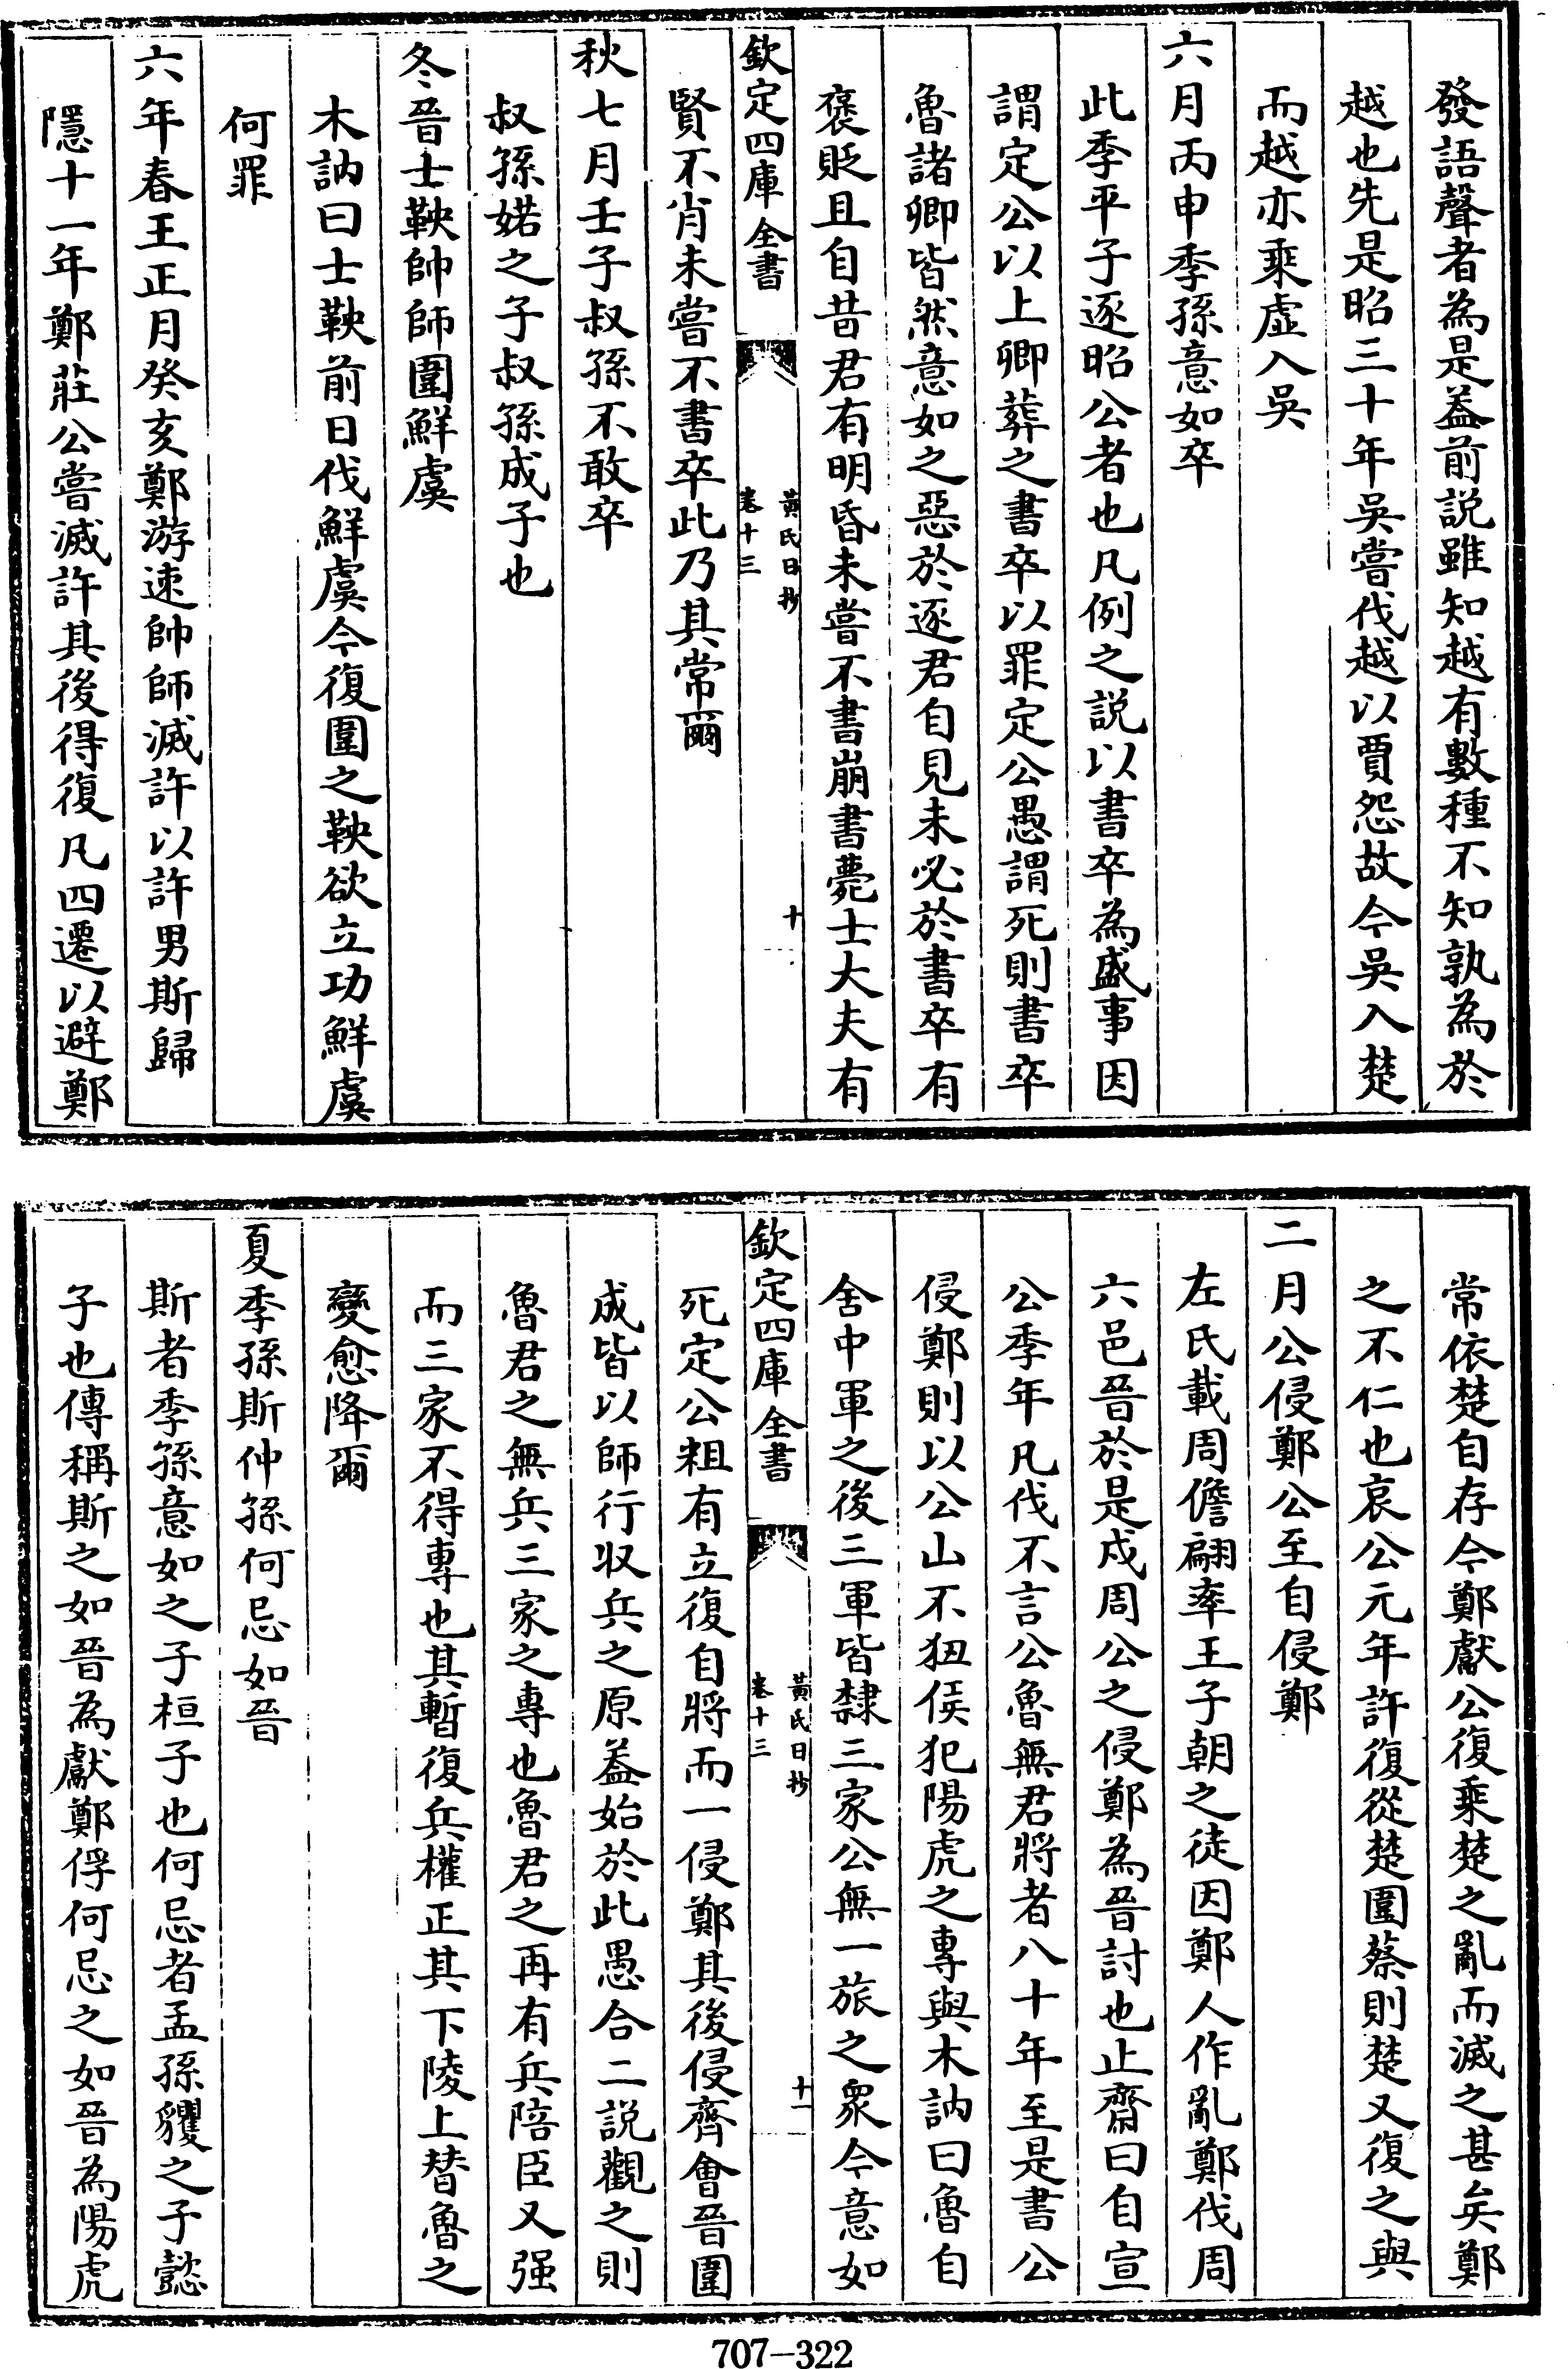 發語聲者為是葢前説雖知越有數種不知孰為於
越也先是昭三十年吳嘗伐越以賈怨故今吳入楚
而越亦乘虛入吳
六月丙申季孫意如卒
此季平子逐昭公者也凡例之説以書卒為盛事因
謂定公以上卿葬之書卒以罪定公愚謂死則書卒
魯諸卿皆然意如之惡於逐君自見未必於書卒有
褒貶且自昔君有明昏未嘗不書崩書薨士大夫有
欽定四庫全書
黃氏日抄
卷十三
十
賢不肖未嘗不書卒此乃其常爾
秋七月壬子叔孫不敢卒
叔孫婼之子叔孫成子也
冬晉士鞅帥師圍鮮虞
木訥曰士鞅前日伐鮮虞今復圍之鞅欲立功鮮虞
何罪
六年春王正月癸亥鄭游速帥師滅許以許男斯歸
隱十一年鄭莊公嘗滅許其後得復凡四遷以避鄭
常依楚自存今鄭獻公復乘楚之亂而滅之甚矣鄭
之不仁也哀公元年許復從楚圍蔡則楚又復之與
二月公侵鄭公至自侵鄭
左氏載周儋翩率王子朝之徒因鄭人作亂鄭伐周
六邑晉於是戍周公之侵鄭為晉討也止齋曰自宣
公季年凡伐不言公魯無君將者八十年至是書公
侵鄭則以公山不狃侯犯陽虎之專與木訥曰魯自
舍中軍之後三軍皆隸三家公無一旅之衆今意如
欽定四庫全書
黃氏日抄
卷十三
十一
死定公粗有立復自將而一侵鄭其後侵齊會晉圍
成皆以師行収兵之原葢始於此愚合二説觀之則
魯君之無兵三家之專也魯君之再有兵陪臣又强
而三家不得專也其暫復兵權正其下陵上替魯之
變愈降爾
夏季孫斯仲孫何忌如晉
斯者季孫意如之子桓子也何忌者孟孫貜之子懿
子也傳稱斯之如晉為獻鄭俘何忌之如晉為陽虎
707-322